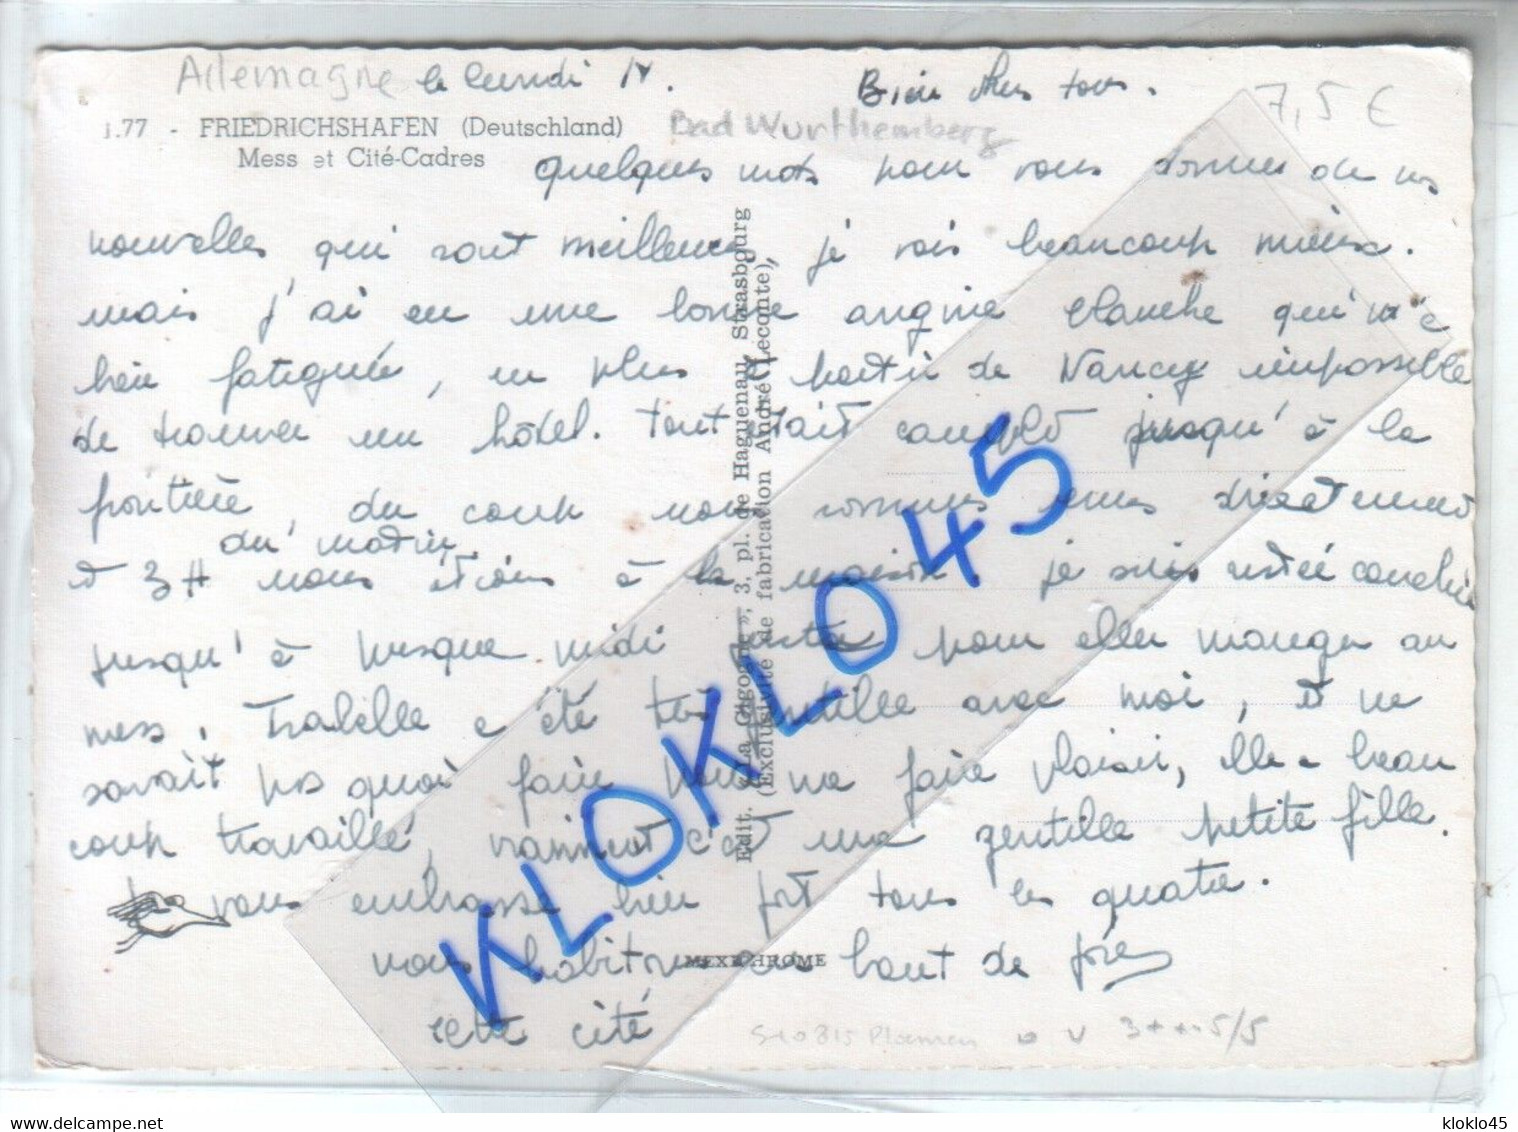 Allemagne le lundi 14. Bien chers tous.
7,5 €
1.77 - FRIEDRICHSHAFEN (Deutschland)
Bad Wurthemberg
Mess et Cité-Cadres
quelques mots pour vous donner de nos
nouvelles qui sont meilleures, je vais beaucoup mieux.
mais j'ai eu une bonne angine blanche qui m'a
bien fatiguée, en plus à partir de Nancy impossible
de trouver un hôtel. tout était complet jusqu'à la
frontière, du coup nous sommes venus directement
du matin
et 3H nous étions à la maison je suis restée couchée
jusqu'à presque midi juste pour aller manger au
mess. Isabelle a été très gentille avec moi, et ne
savait pas quoi faire pour me faire plaisir, elle a beau
coup travaillé, vraiment c'est une gentille petite fille.
vous embrasse bien fort tous les quatre.
nous habitons au haut de
cette cité
Edit. « La Cigogne », 3, pl. de Haguenau, Strasbourg
(Exclusivité de fabrication André Leconte)
MEXICHROME
KLOKLO45
kloklo45